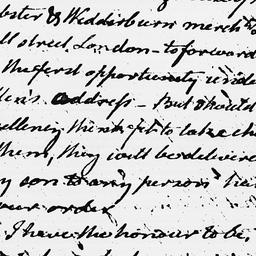 bster & Wedderburn merch
ll street, London - to forward
The first opportunity unde
address - But should
cellency think fit to take ch
them, they will be delivere
y son to any person
our order
I have the honour to be,